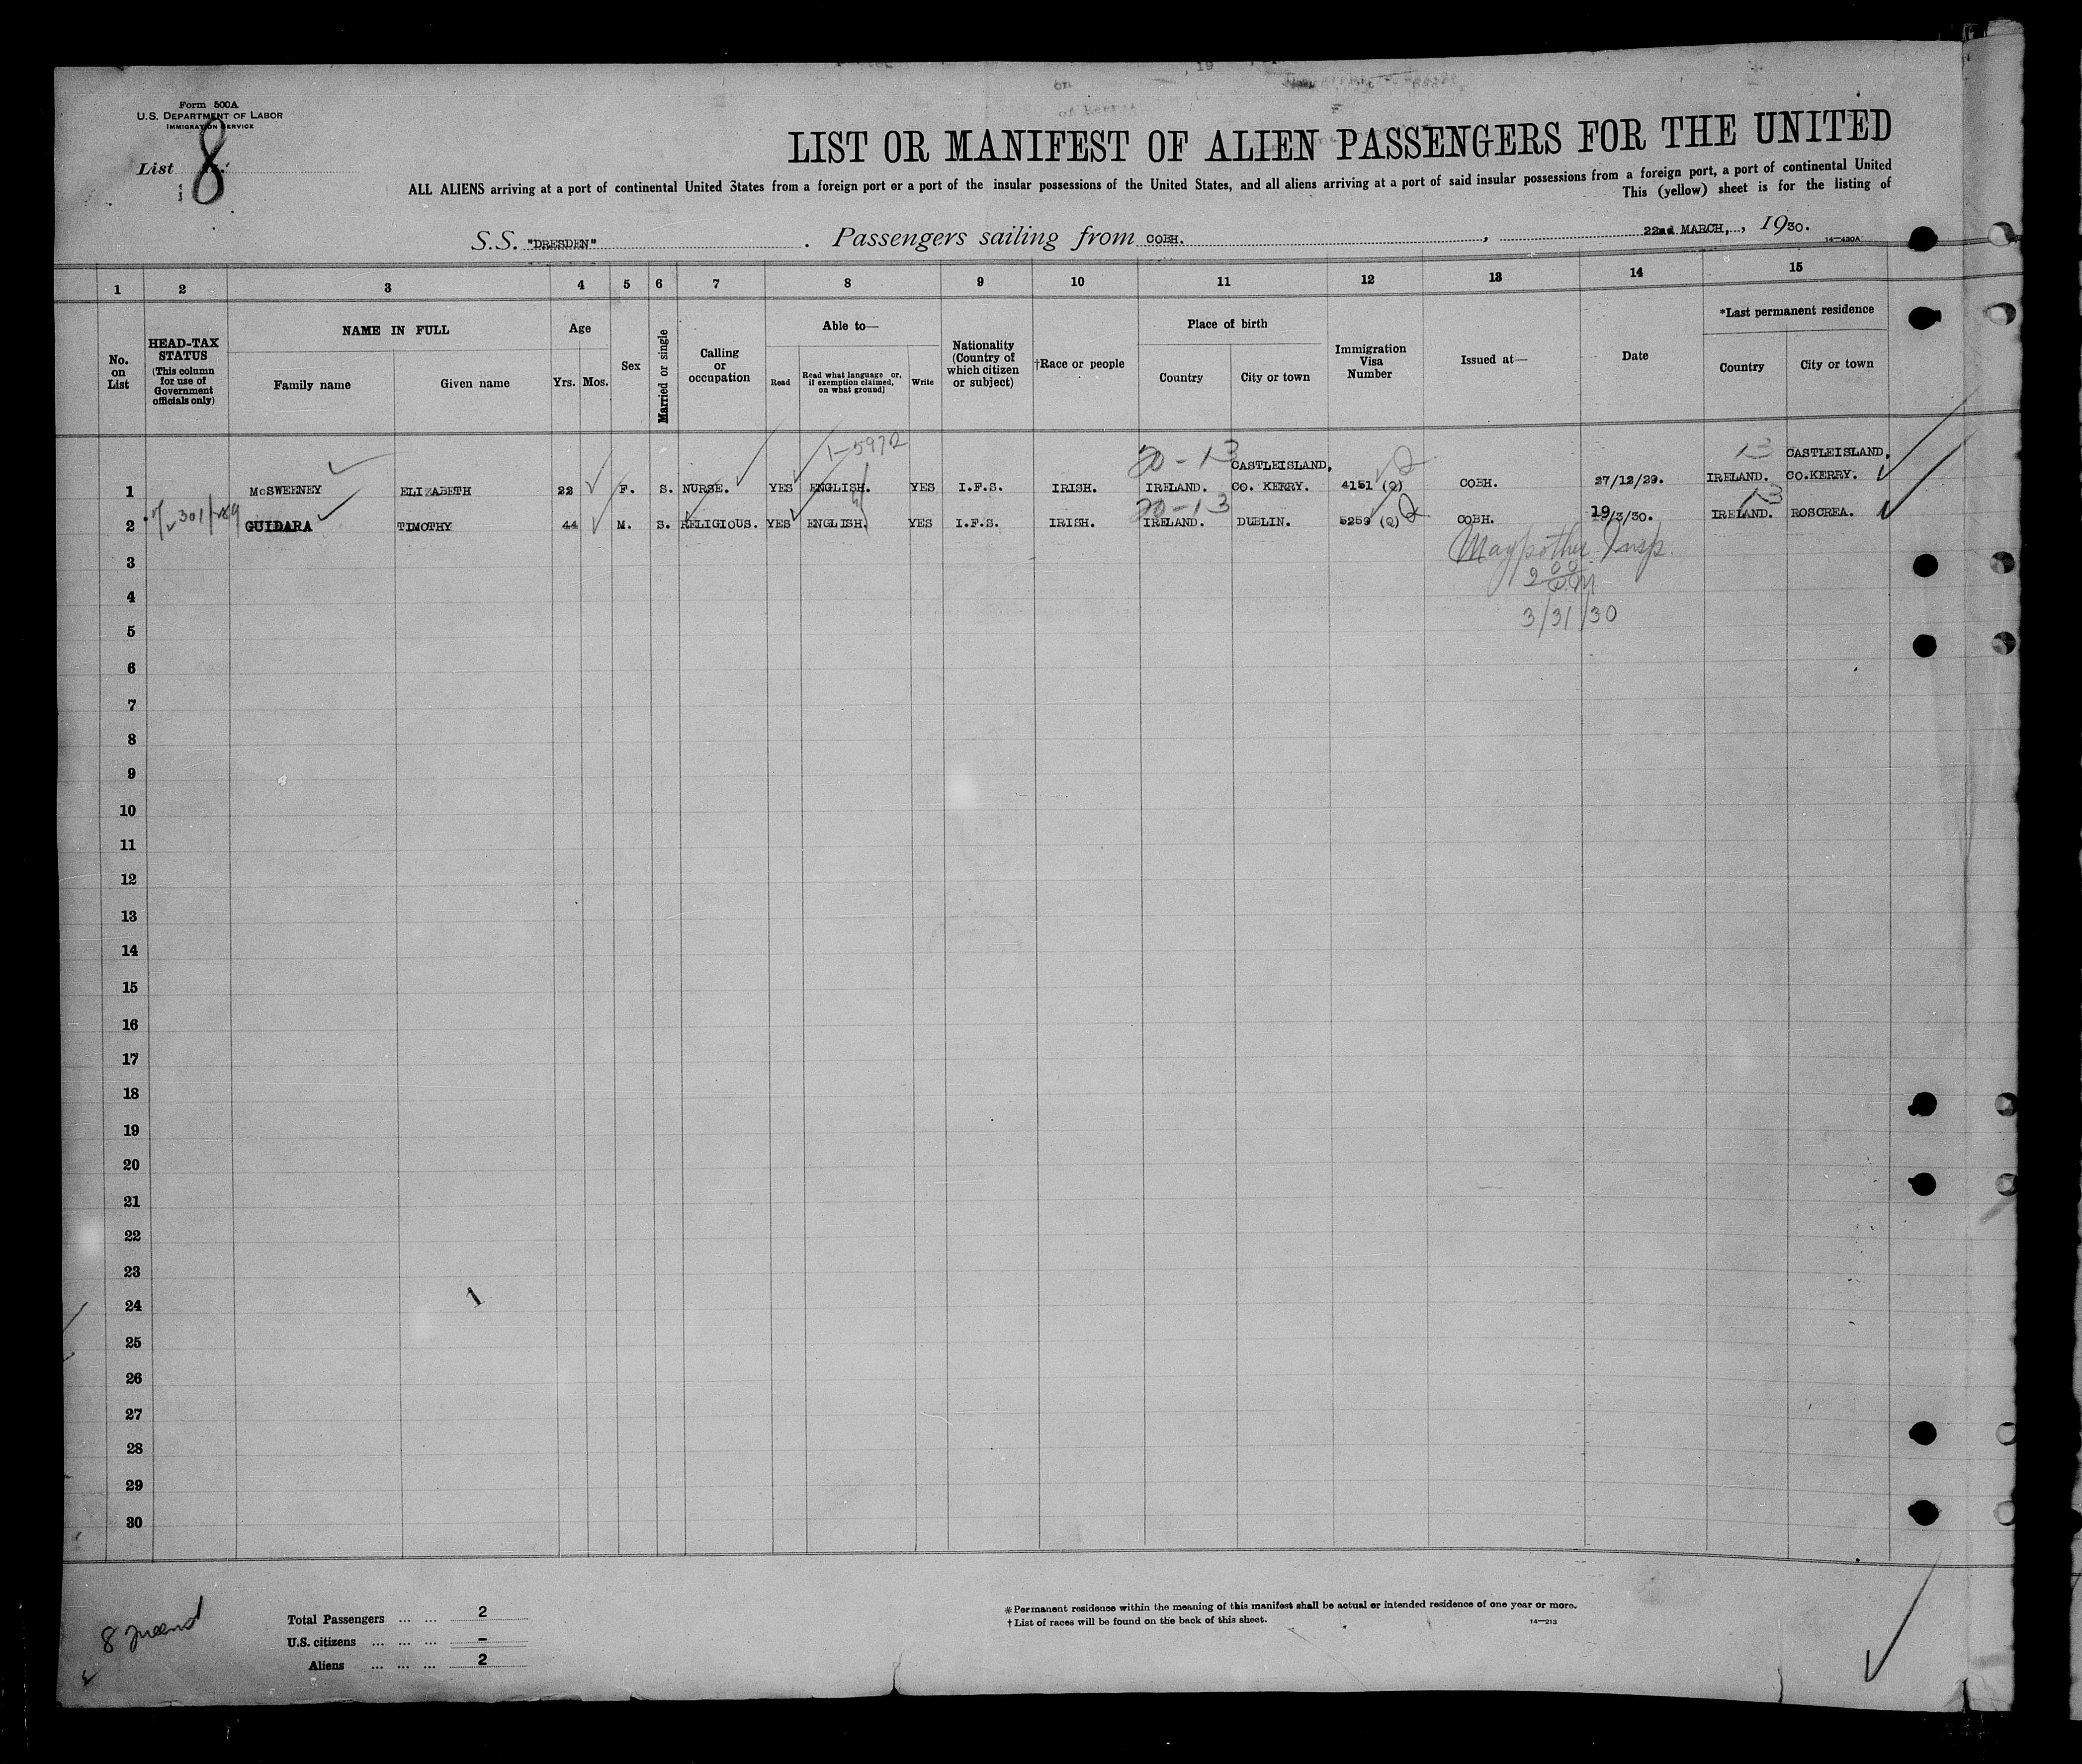 Form 500A
U.S. DEPARTMENT OF LABOR
IMMIGRATION SERVICE
List 8
LIST OR MANIFEST OF ALIEN PASSENGERS FOR THE UNITED
ALL ALIENS arriving at a port of continental United States from a foreign port or a port of the insular possessions of the United States, and all aliens arriving at a port of said insular possessions from a foreign port, a port of continental United
This (yellow) sheet is for the listing of
S.S. "DRESDEN" . Passengers sailing from COBH. , 22nd MARCH, , 1930.
14—430A
1 2 3 4 5 6 7 8 9 10 11 12 13 14 15
No. on List
HEAD-TAX STATUS (This column for use of Government officials only)
NAME IN FULL
Family name
Given name
Age
Yrs. Mos.
Sex
Married or single
Calling or occupation
Able to—
Read
Read what language or, if exemption claimed, on what ground)
Write
Nationality (Country of which citizen or subject)
†Race or people
Place of birth
Country
City or town
Immigration Visa Number
Issued at—
Date
*Last permanent residence
Country
City or town
1-5972
20-13 13
1 McSWEENEY ELIZABETH 22 F. S. NURSE. YES ENGLISH. YES I.F.S. IRISH. IRELAND. CASTLEISLAND, CO. KERRY. 4151 (Q) COBH. 27/12/29. IRELAND. CASTLEISLAND, CO.KERRY.
20-13 13
2 GUIDARA TIMOTHY 44 M. S. RELIGIOUS. YES ENGLISH. YES I.F.S. IRISH. IRELAND. DUBLIN. 5259 (Q) COBH. 19/3/30. IRELAND. ROSCREA.
3
Insp.
4
3/31/30
5
6
7
8
9
10
11
12
13
14
15
16
17
18
19
20
21
22
23
24
25
26
27
28
29
30
Total Passengers ... ... 2
U.S. citizens ... ... ... –
Aliens ... ... ... 2
*Permanent residence within the meaning of this manifest shall be actual or intended residence of one year or more.
†List of races will be found on the back of this sheet.
14—213